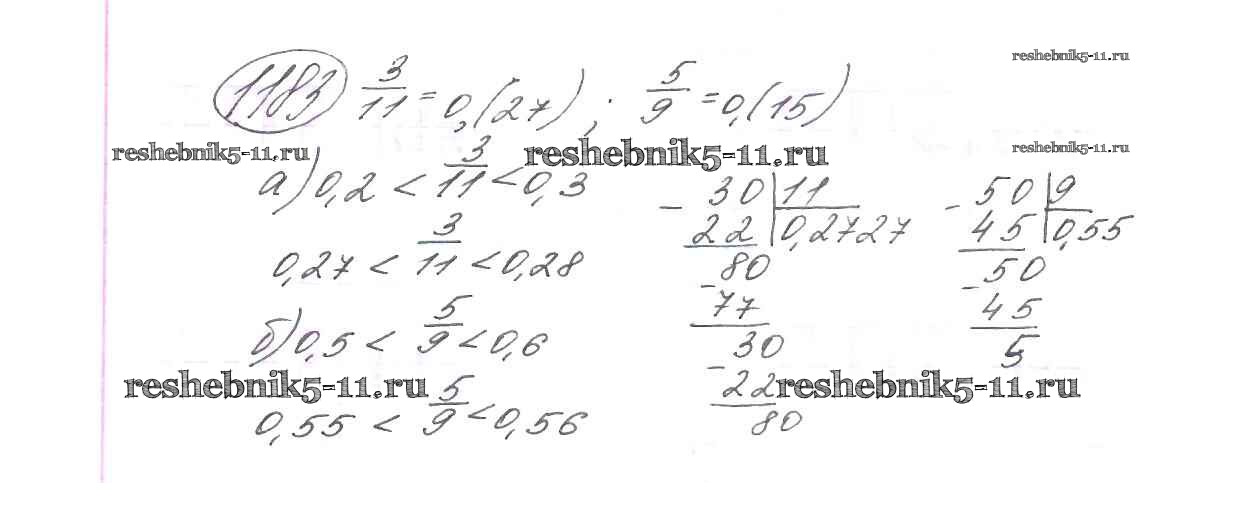 reshebnik5-11.ru
1183 3/11 = 0,(27) ; 5/9 = 0,(15)
reshebnik5-11.ru reshebnik5-11.ru reshebnik5-11.ru
а) 0,2 < 3/11 < 0,3
0,27 < 3/11 < 0,28
б) 0,5 < 5/9 < 0,6
reshebnik5-11.ru
0,55 < 5/9 < 0,56
- 30 | 11
22 | 0,2727
80
- 77
30
- 22
80
- 50 | 9
45 | 0,55
50
- 45
5
reshebnik5-11.ru